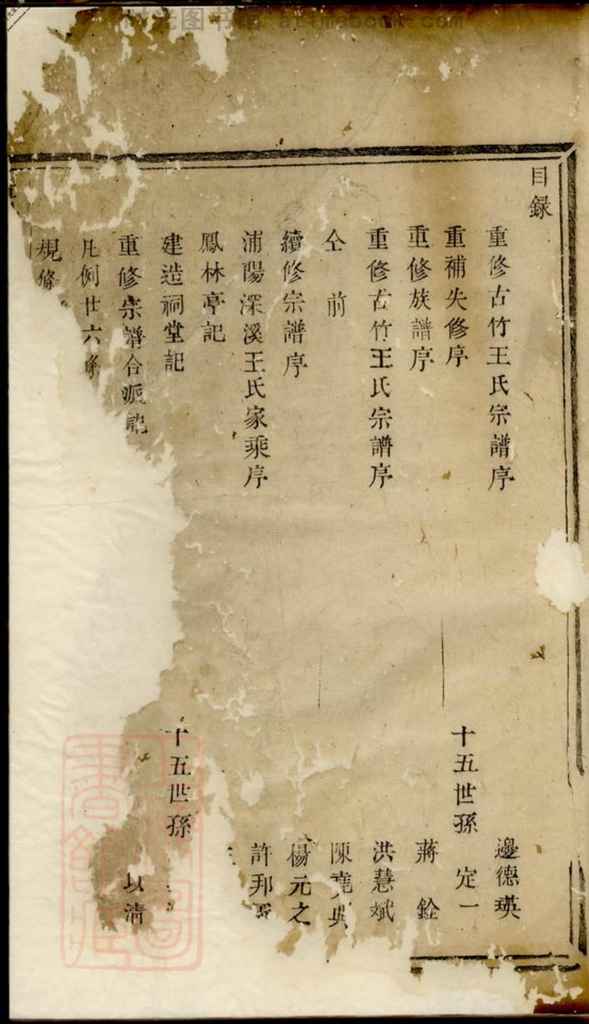 目録
重修古竹王氏宗譜序 邊德瑛
重補失修序 十五世孫 定一
重修族譜序 蔣銓
重修古竹王氏宗譜序 洪慧斌
仝前 陳堯
續修宗譜序 楊元之
浦陽深溪王氏家乘序 許邦
鳳林亭記
建造祠堂記 十五世孫
重修宗譜合派記 以清
凡例廿六條
規條